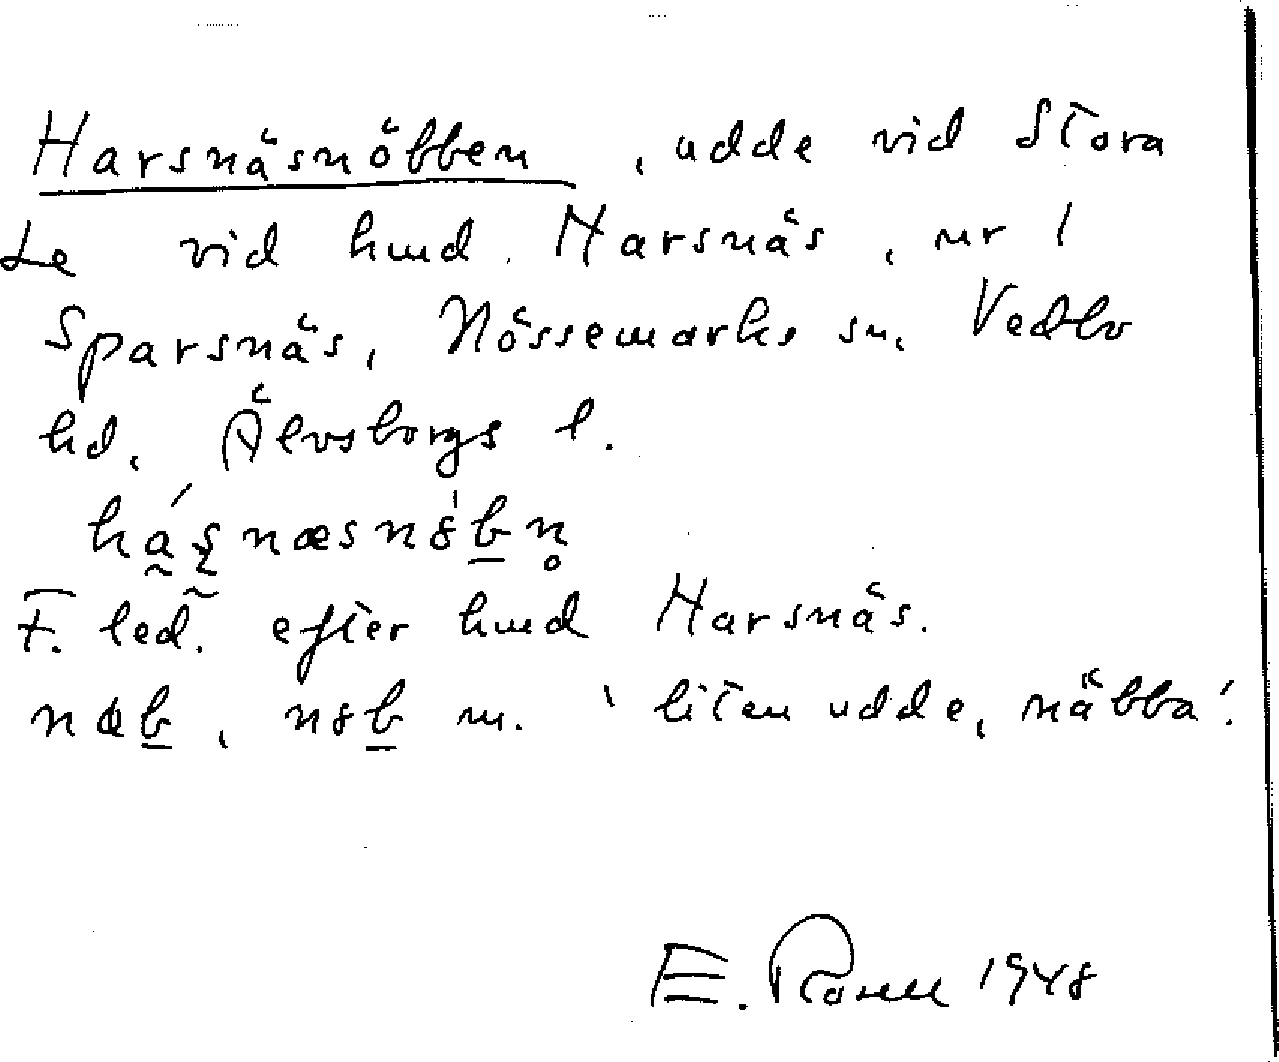 Harsnäsnöbben , udde vid Stora
Le vid hmd. Harsnäs, nr 1
Sparsnäs, Nössemarks sn. Vedbo
hd. Älvsborgs l.
F. led. efter hmd Harsnäs.
m. 'liten udde, näbba'.
E. 1948